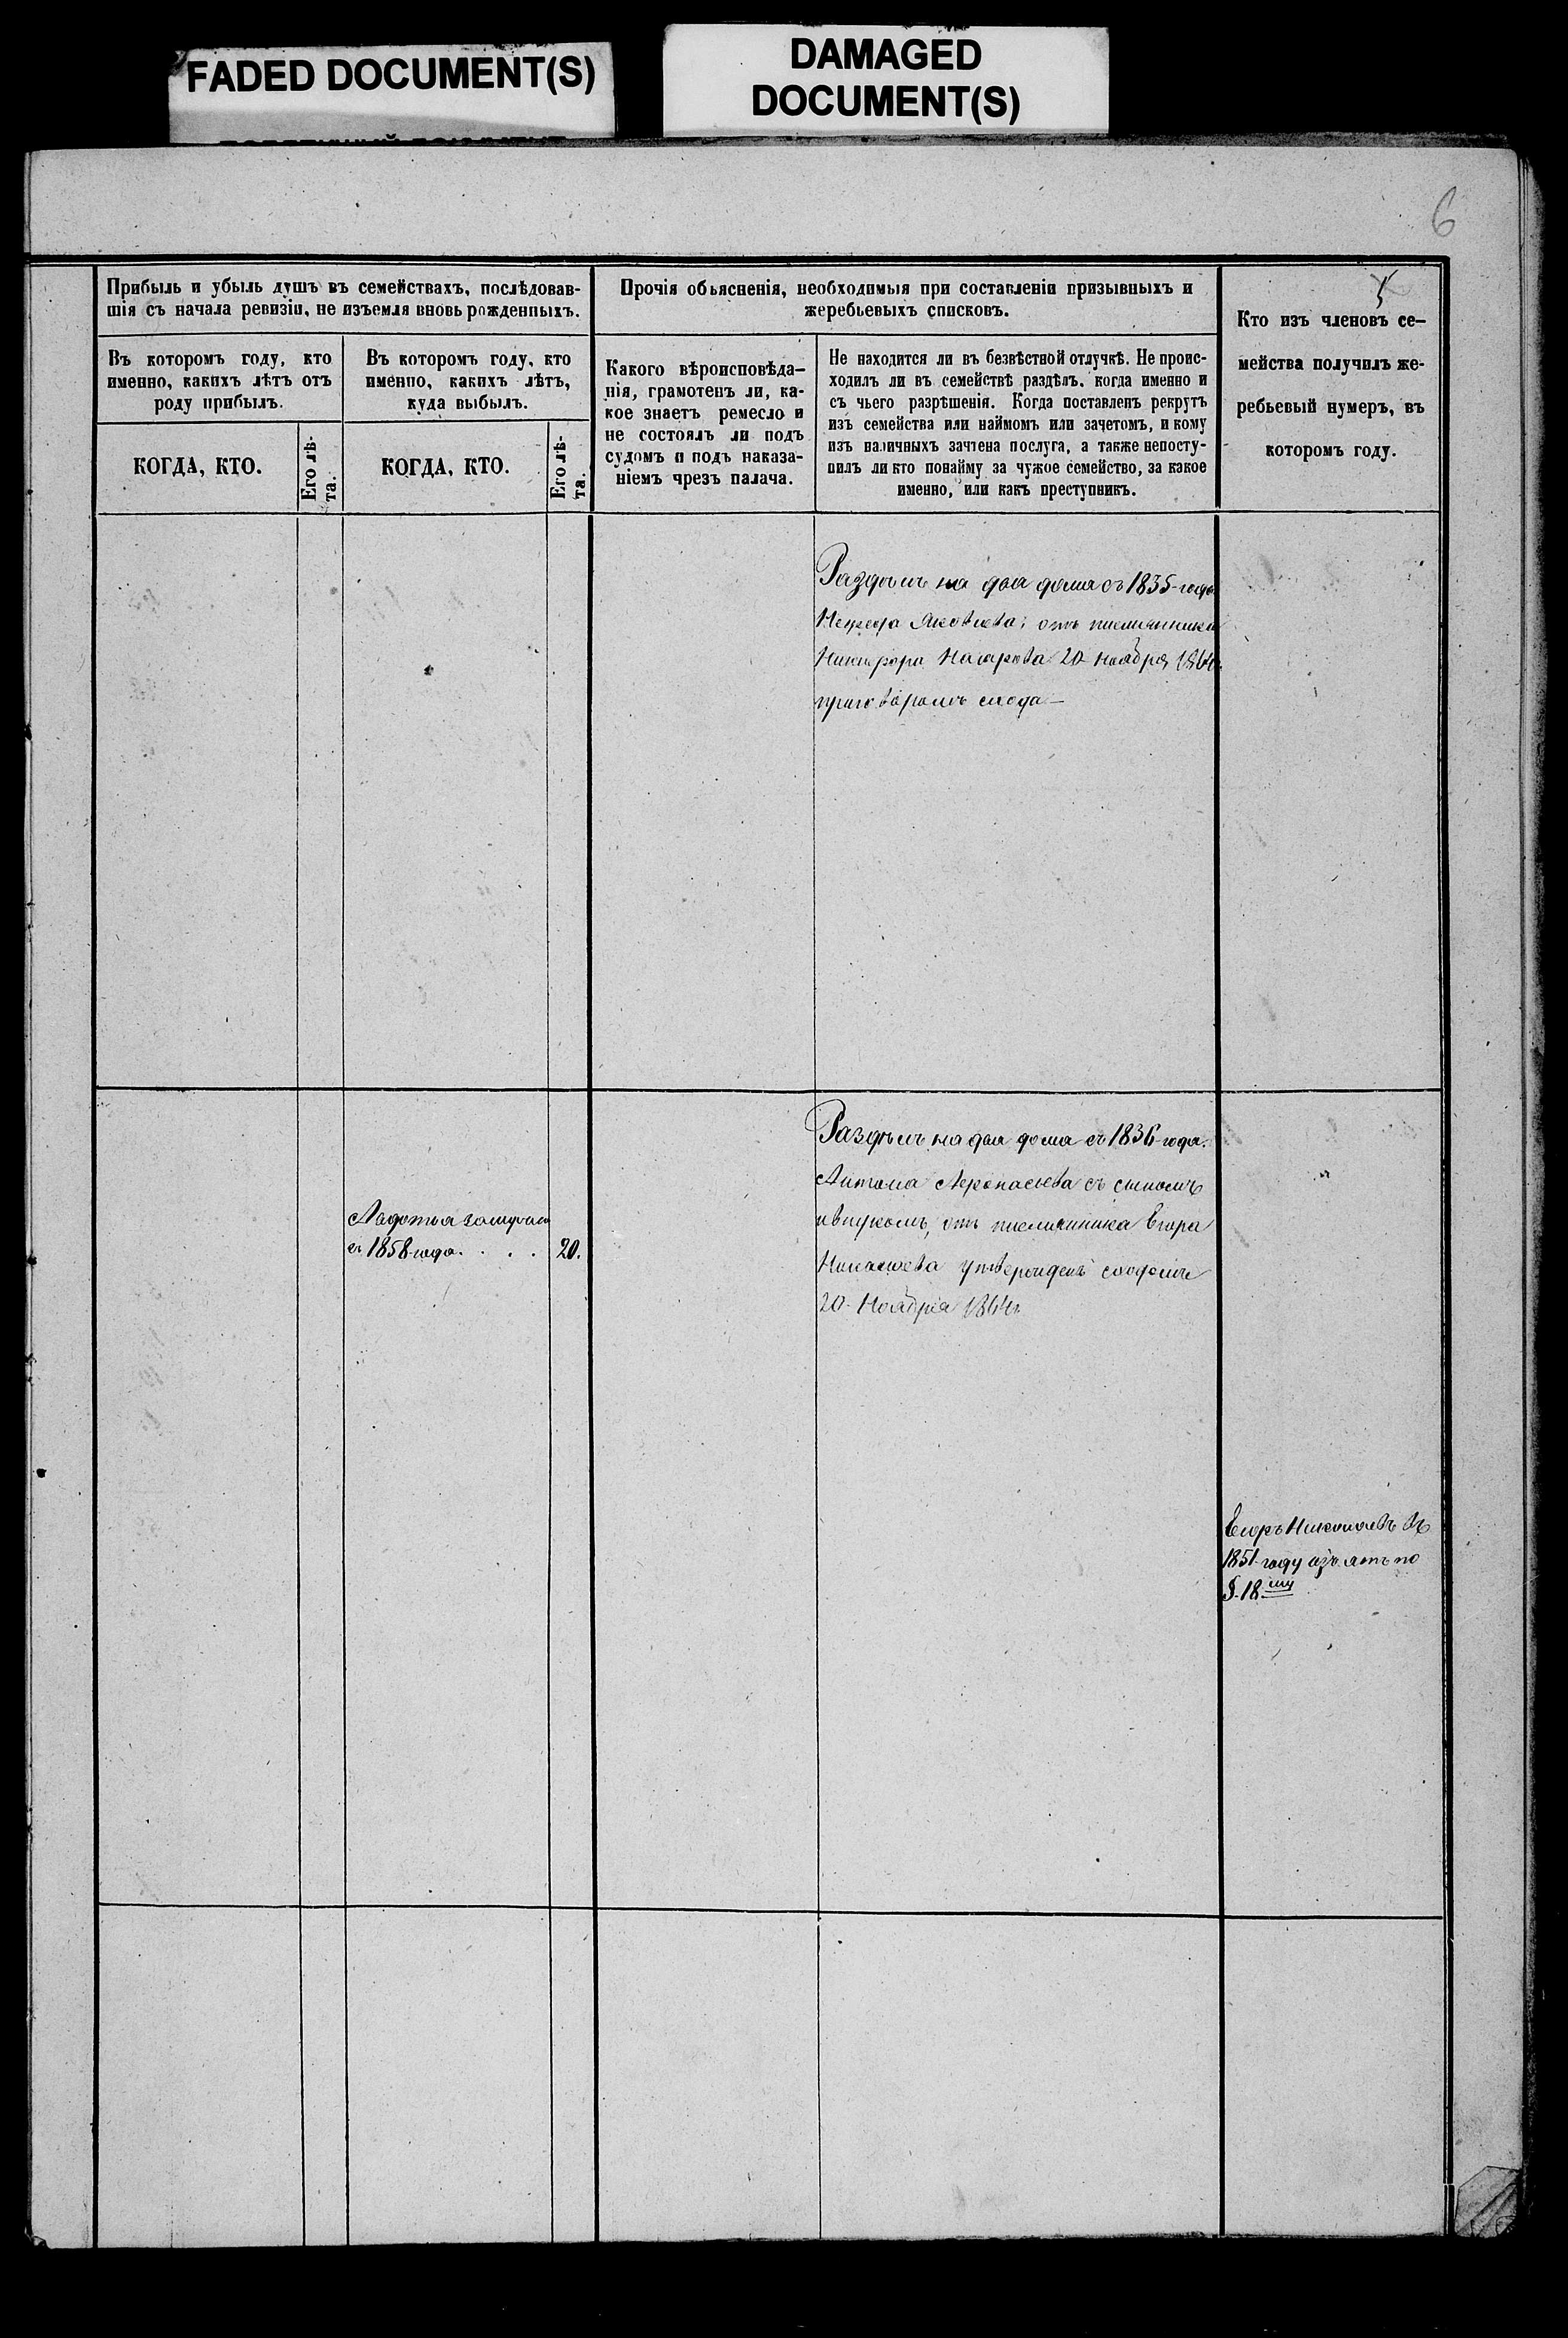 FADED DOCUMENT(S)
DAMAGED
DOCUMENT(S)
6
Прибыль и убыль душъ въ семействахъ, послѣдовав-
шія съ начала ревизіи, не изъемля вновь рожденныхъ.
Въ которомъ году, кто
именно, какихъ лѣтъ отъ
роду прибылъ.
КОГДА, КТО.
Его лѣ-
та.
Въ которомъ году, кто
именно, какихъ лѣтъ,
куда выбылъ.
КОГДА, КТО.
Его лѣ-
та.
Прочія обьясненія, необходимыя при составленіи призывныхъ и
жеребьевыхъ списковъ.
Какого вѣроисповѣда-
нія, грамотенъ ли, ка-
кое знаетъ ремесло и
не состоялъ ли подъ
судомъ и подъ наказа-
ніемъ чрезъ палача.
Не находится ли въ безвѣстной отлучкѣ. Не проис-
ходилъ ли въ семействѣ раздѣлъ, когда именно и
съ чьего разрѣшенія. Когда поставленъ рекрутъ
изъ семейства или наймомъ или зачетомъ, и кому
изъ наличныхъ зачтена послуга, а также непосту-
пилъ ли кто понайму за чужое семейство, за какое
именно, или какъ преступникъ.
5
Кто изъ членовъ се-
мейства получилъ же-
ребьевый нумеръ, въ
которомъ году.
Раздѣлъ на два дома съ 1835-года
Яковлева; отъ племянника
Никифора Назарова 20 Ноября 1864г.
приговоромъ схода—
Авдотья замужъ
съ 1858-года. . . . 20.
Раздѣлъ на два дома съ 1836-года.
Антона Афонасьева съ сыномъ
ивнукомъ, отъ племянника Егора
Николаева утвержденъ сходомъ
20 Ноября 1864г.
Егоръ Николаевъ въ
1851-году изъятъ по
§-18-му